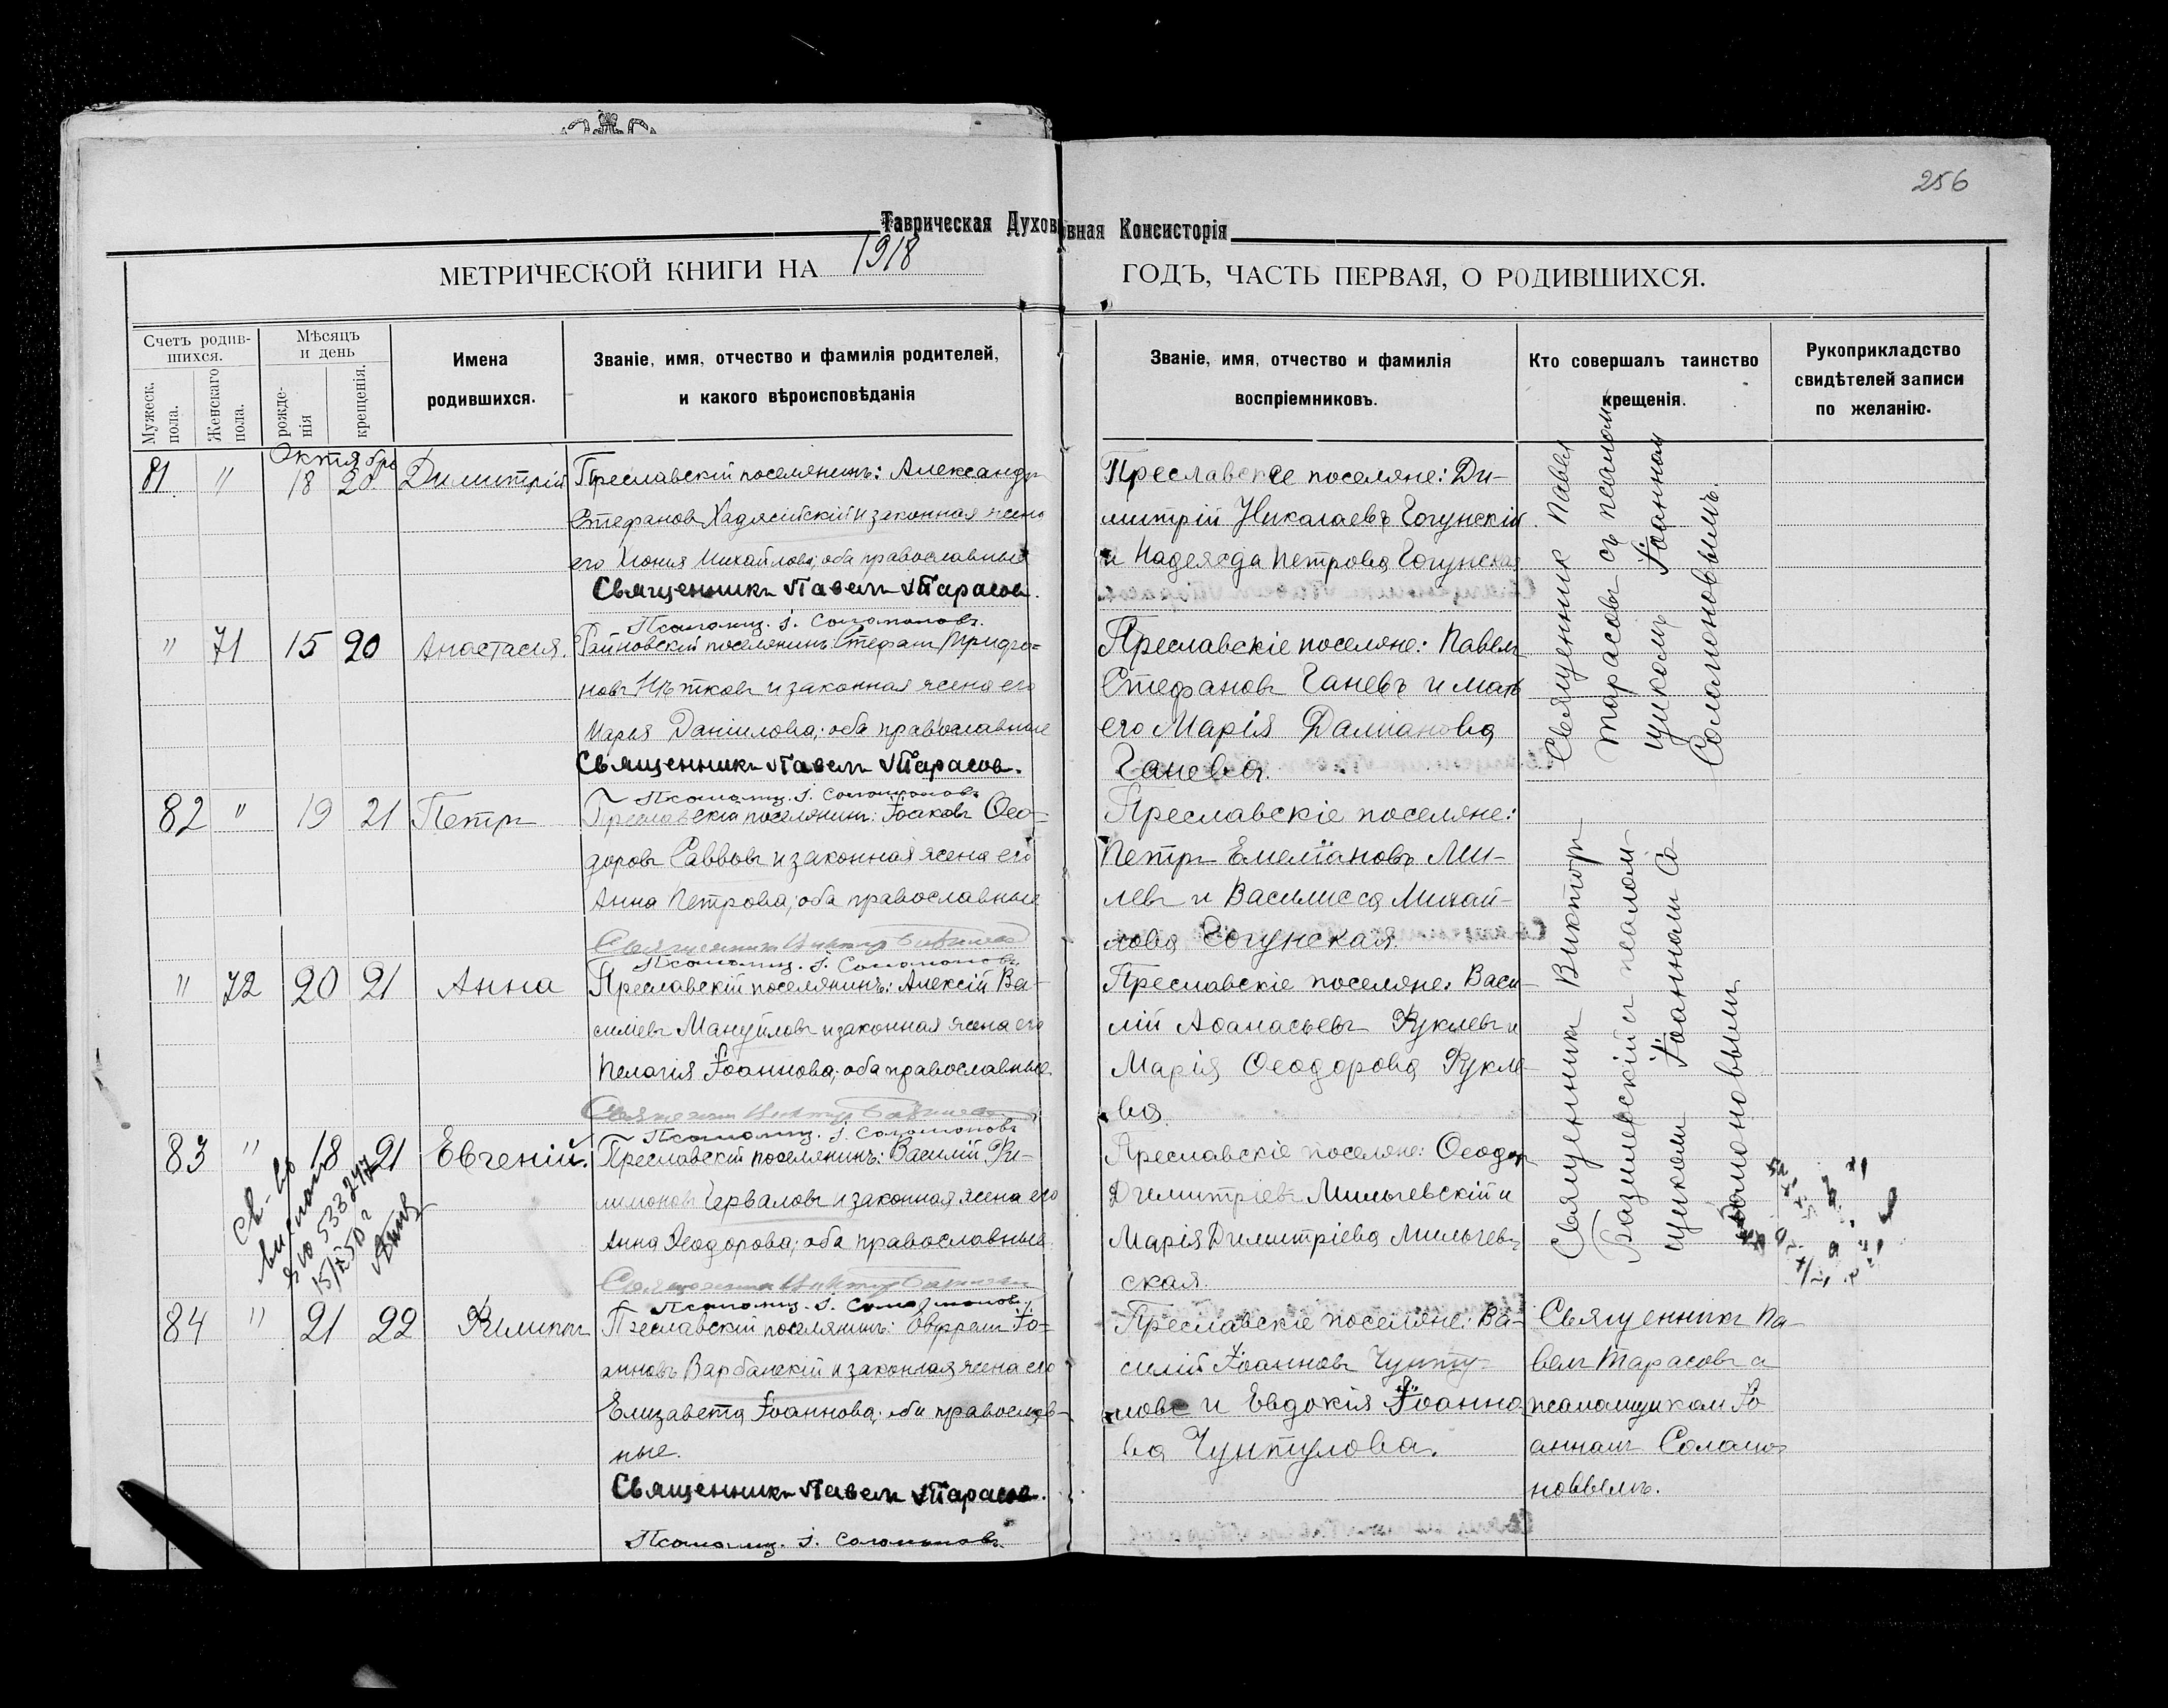 256
Таврическая Духовная Консисторія
МЕТРИЧЕСКОЙ КНИГИ НА 1918 ГОДЪ, ЧАСТЬ ПЕРВАЯ, О РОДИВШИХСЯ.
Счетъ родив-
шихся.
Мужеск.
пола.
Женскаго
пола.
Мѣсяцъ
и день
рожде-
нія
крещенія.
Имена
родившихся.
Званіе, имя, отчество и фамилія родителей,
и какого вѣроисповѣданія
Званіе, имя, отчество и фамилія
воспріемниковъ.
Кто совершалъ таинство
крещенія.
Рукоприкладство
свидѣтелей записи
по желанію.
Октябрь
81 " 18 20 Димитрій
Преславскій поселянинъ: Александръ
Стефановъ Хаджійскій и законная жена
его Михайлова; оба православные
Священникъ Павелъ Тарасов.
Псаломщ. І. Соломоновъ.
Преславскіе поселяне: Ди-
митрій Николаевъ Гогунскій
и Надежда Петрова Гогунская
" 71 15 20 Анастасія.
Райновскій поселянинъ: Стефанъ
новъ и законная жена его
Марія Даніилова; оба православные
Священникъ Павелъ Тарасов.
Псаломщ. І. Соломоновъ
Преславскіе поселяне: Павелъ
Стефановъ Ганевъ и мать
его Марія Даміанова
Ганева.
Священник Павел
Тарасовъ съ псалом-
щикомъ Іоанномъ
Соломоновымъ.
82 " 19 21 Петръ
Преславскій поселянинъ: Іоаковъ Ѳео-
доровъ Саввовъ и законная жена его
Анна Петрова; оба православные
Священникъ Викторъ
Псаломщ. І. Соломоновъ
Преславскіе поселяне:
Петръ Емеліановъ Ми-
левъ и Василисса Михай-
лова Гогунская.
" 72 20 21 Анна
Преславскій поселянинъ: Алексій Ва-
силіевъ Мануйловъ и законная жена его
Пелагія Іоаннова; оба православные
Священникъ Викторъ
Псаломщ. І. Соломоновъ
Преславскіе поселяне: Васи-
лій Аѳанасьевъ Руклевъ и
Марія Ѳеодорова Рукле-
ва.
83 " 18 21 Евгеній.
Преславскій поселянинъ: Василій Фи-
лимоновъ Черваловъ и законная жена его
Анна Ѳеодорова; оба православные
Священникъ Викторъ
Псаломщ. І. Соломоновъ
Преславскіе поселяне: Ѳеодоръ
Димитріевъ Мильчевскій и
Марія Димитріева Мильчев-
ская.
Св-во
выслано
Священникъ Викторъ
и псалом-
щикомъ Іоанномъ Со-
ломоновымъ
84 " 21 22 Филиппъ
Преславскій поселянинъ: Евфремъ Іо-
анновъ Варбанскій и законная жена его
Елизавета Іоаннова; оба православ-
ные.
Священникъ Павелъ Тарасов.
Псаломщ. І. Соломоновъ
Преславскіе поселяне: Ва-
силій Іоанновъ Чунту-
ловъ и Евдокія Іоанно
ва Чунтулова.
Священникъ Па-
велъ Тарасовъ с
псаломщиком Іо
анномъ Соломо
новымъ.